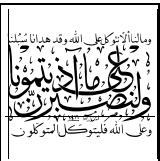 ومالنا ألا نتوكل على الله وقد هدانا سبلنا
ولنصبرن على ما آذيتمونا
وعلى الله فليتوكل المتوكلون